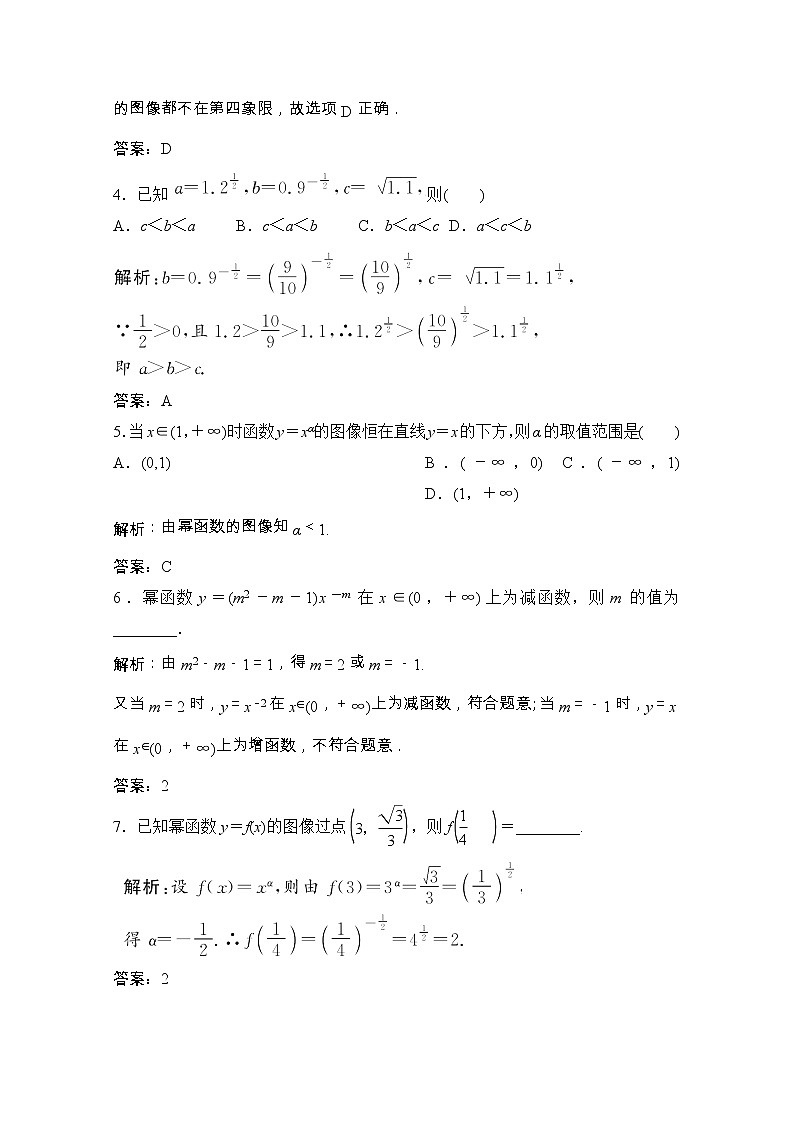 的图像都不在第四象限，故选项 D 正确．
答案：D
4．已知 a＝1.2^{1/2}，b＝0.9^{－1/2}，c＝√1.1，则(　　)
A．c＜b＜a　B．c＜a＜b　C．b＜a＜c　D．a＜c＜b
解析：b＝0.9^{－1/2}＝(9/10)^{－1/2}＝(10/9)^{1/2}，c＝√1.1＝1.1^{1/2}，
∵1/2＞0，且 1.2＞10/9＞1.1，∴1.2^{1/2}＞(10/9)^{1/2}＞1.1^{1/2}，
即 a＞b＞c.
答案：A
5．当 x∈(1，＋∞)时函数 y＝x^α的图像恒在直线 y＝x 的下方，则 α 的取值范围是(　　)
A．(0,1)　B．(－∞，0)　C．(－∞，1)
D．(1，＋∞)
解析：由幂函数的图像知 α＜1.
答案：C
6．幂函数 y＝(m²－m－1)x^{－m} 在 x∈(0，＋∞)上为减函数，则 m 的值为
________．
解析：由 m²－m－1＝1，得 m＝2 或 m＝－1.
又当 m＝2 时，y＝x^{－2}在 x∈(0，＋∞)上为减函数，符合题意；当 m＝－1 时，y＝x
在 x∈(0，＋∞)上为增函数，不符合题意．
答案：2
7．已知幂函数 y＝f(x)的图像过点(3，√3/3)，则 f(1/4)＝________.
解析：设 f(x)＝x^α，则由 f(3)＝3^α＝√3/3＝(1/3)^{1/2}，
得 α＝－1/2.∴f(1/4)＝(1/4)^{－1/2}＝4^{1/2}＝2.
答案：2